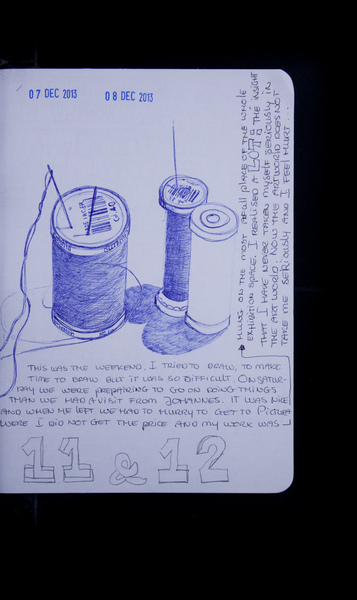 07 DEC 2013 08 DEC 2013
THIS WAS THE WEEKEND. I TRIED TO DRAW, TO MAKE
TIME TO DRAW BUT IT WAS SO DIFFICULT. ON SATUR-
DAY WE WERE PREPARING TO GO ON DOING THINGS
THAN WE HAD A VISIT FROM JOHANNES. IT WAS NICE
AND WHEN HE LEFT WE HAD TO HURRY TO GET TO PICTURA
WERE I DID NOT GET THE PRICE AND MY WORK WAS
HUNG ON THE MOST AFULL PLACE OF THE WHOLE
EXHIBITION SPACE. I REALISED A LOT: THE INSIGHT
THAT I HAVE NEVER TAKEN MYSELF SERIOUSLY IN
THE ART WORLD. NOW THE ART WORLD DOES NOT
TAKE ME SERIOUSLY AND I FEEL HURT...
11 & 12